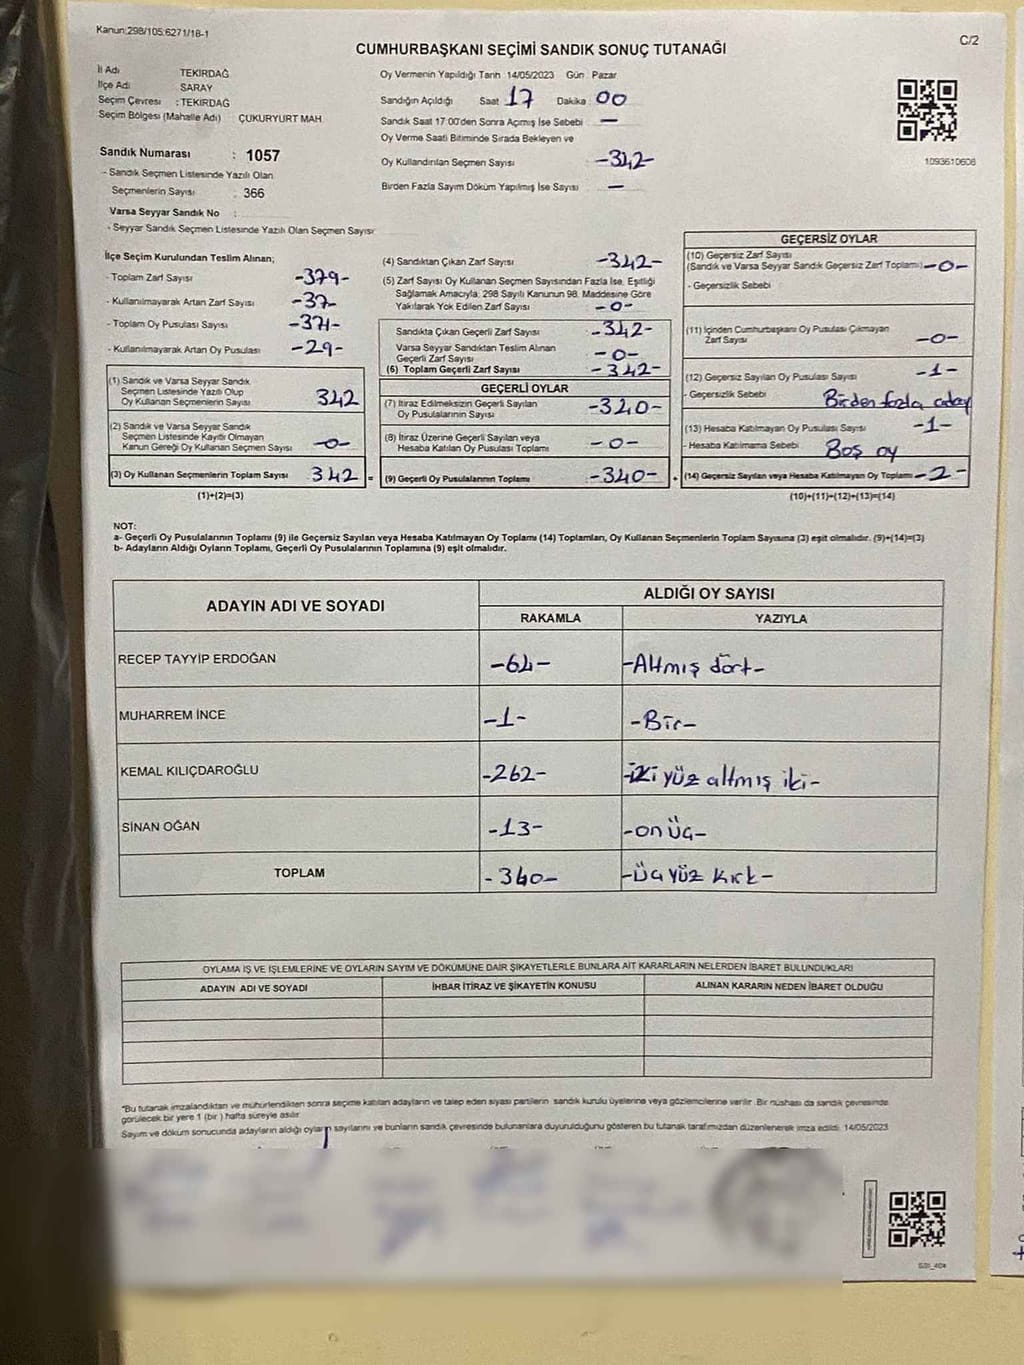 Kanun:298/105:6271/18-1
C/2
CUMHURBAŞKANI SEÇİMİ SANDIK SONUÇ TUTANAĞI
İl Adı TEKİRDAĞ
İlçe Adı SARAY
Seçim Çevresi : TEKİRDAĞ
Seçim Bölgesi (Mahalle Adı) ÇUKURYURT MAH
Sandık Numarası : 1057
- Sandık Seçmen Listesinde Yazılı Olan
Seçmenlerin Sayısı : 366
Varsa Seyyar Sandık No :
- Seyyar Sandık Seçmen Listesinde Yazılı Olan Seçmen Sayısı
Oy Vermenin Yapıldığı Tarih 14/05/2023 Gün : Pazar
Sandığın Açıldığı Saat : 17 Dakika : 00
Sandık Saat 17:00'den Sonra Açımış İse Sebebi —
Oy Verme Saati Bitiminde Sırada Bekleyen ve
Oy Kullandırılan Seçmen Sayısı : -342-
Birden Fazla Sayım Döküm Yapılmış İse Sayısı : —
1093610606
İlçe Seçim Kurulundan Teslim Alınan;
- Toplam Zarf Sayısı -379-
- Kullanılmayarak Artan Zarf Sayısı -37-
- Toplam Oy Pusulası Sayısı -371-
- Kullanılmayarak Artan Oy Pusulası -29-
(1) Sandık ve Varsa Seyyar Sandık
Seçmen Listesinde Yazılı Olup
Oy Kullanan Seçmenlerin Sayısı 342
(2) Sandık ve Varsa Seyyar Sandık
Seçmen Listesinde Kayıtlı Olmayan
Kanun Gereği Oy Kullanan Seçmen Sayısı -0-
(3) Oy Kullanan Seçmenlerin Toplam Sayısı 342 =
(1)+(2)=(3)
(4) Sandıktan Çıkan Zarf Sayısı -342-
(5) Zarf Sayısı Oy Kullanan Seçmen Sayısından Fazla İse, Eşitliği
Sağlamak Amacıyla; 298 Sayılı Kanunun 98. Maddesine Göre
Yakılarak Yok Edilen Zarf Sayısı -0-
Sandıkta Çıkan Geçerli Zarf Sayısı -342-
Varsa Seyyar Sandıktan Teslim Alınan
Geçerli Zarf Sayısı -0-
(6) Toplam Geçerli Zarf Sayısı -342-
GEÇERLİ OYLAR
(7) İtiraz Edilmeksizin Geçerli Sayılan
Oy Pusulalarının Sayısı -340-
(8) İtiraz Üzerine Geçerli Sayılan veya
Hesaba Katılan Oy Pusulası Toplamı -0-
(9) Geçerli Oy Pusulalarının Toplamı -340- +
GEÇERSİZ OYLAR
(10) Geçersiz Zarf Sayısı
(Sandık ve Varsa Seyyar Sandık Geçersiz Zarf Toplamı) -0-
- Geçersizlik Sebebi
(11) İçinden Cumhurbaşkanı Oy Pusulası Çıkmayan
Zarf Sayısı -0-
(12) Geçersiz Sayılan Oy Pusulası Sayısı -1-
- Geçersizlik Sebebi Birden fazla aday
(13) Hesaba Katılmayan Oy Pusulası Sayısı -1-
- Hesaba Katılmama Sebebi Boş oy
(14) Geçersiz Sayılan veya Hesaba Katılmayan Oy Toplamı -2-
(10)+(11)+(12)+(13)=(14)
NOT:
a- Geçerli Oy Pusulalarının Toplamı (9) ile Geçersiz Sayılan veya Hesaba Katılmayan Oy Toplamı (14) Toplamları, Oy Kullanan Seçmenlerin Toplam Sayısına (3) eşit olmalıdır. (9)+(14)=(3)
b- Adayların Aldığı Oyların Toplamı, Geçerli Oy Pusulalarının Toplamına (9) eşit olmalıdır.
ADAYIN ADI VE SOYADI
ALDIĞI OY SAYISI
RAKAMLA YAZIYLA
RECEP TAYYİP ERDOĞAN -64- -Altmış dört-
MUHARREM İNCE -1- -Bir-
KEMAL KILIÇDAROĞLU -262- -iki yüz altmış iki-
SİNAN OĞAN -13- -on üç-
TOPLAM -340- -üç yüz kırk-
OYLAMA İŞ VE İŞLEMLERİNE VE OYLARIN SAYIM VE DÖKÜMÜNE DAİR ŞİKAYETLERLE BUNLARA AİT KARARLARIN NELERDEN İBARET BULUNDUKLARI
ADAYIN ADI VE SOYADI İHBAR İTİRAZ VE ŞİKAYETİN KONUSU ALINAN KARARIN NEDEN İBARET OLDUĞU
"Bu tutanak imzalandıktan ve mühürlendikten sonra seçime katılan adayların ve talep eden siyasi partilerin sandık kurulu üyelerine veya gözlemcilerine verilir. Bir nüshası da sandık çevresinde
görülecek bir yere 1 (bir ) hafta süreyle asılır.
Sayım ve döküm sonucunda adayların aldığı oyların sayılarını ve bunların sandık çevresinde bulunanlara duyurulduğunu gösteren bu tutanak tarafımızdan düzenlenerek imza edildi. 14/05/2023